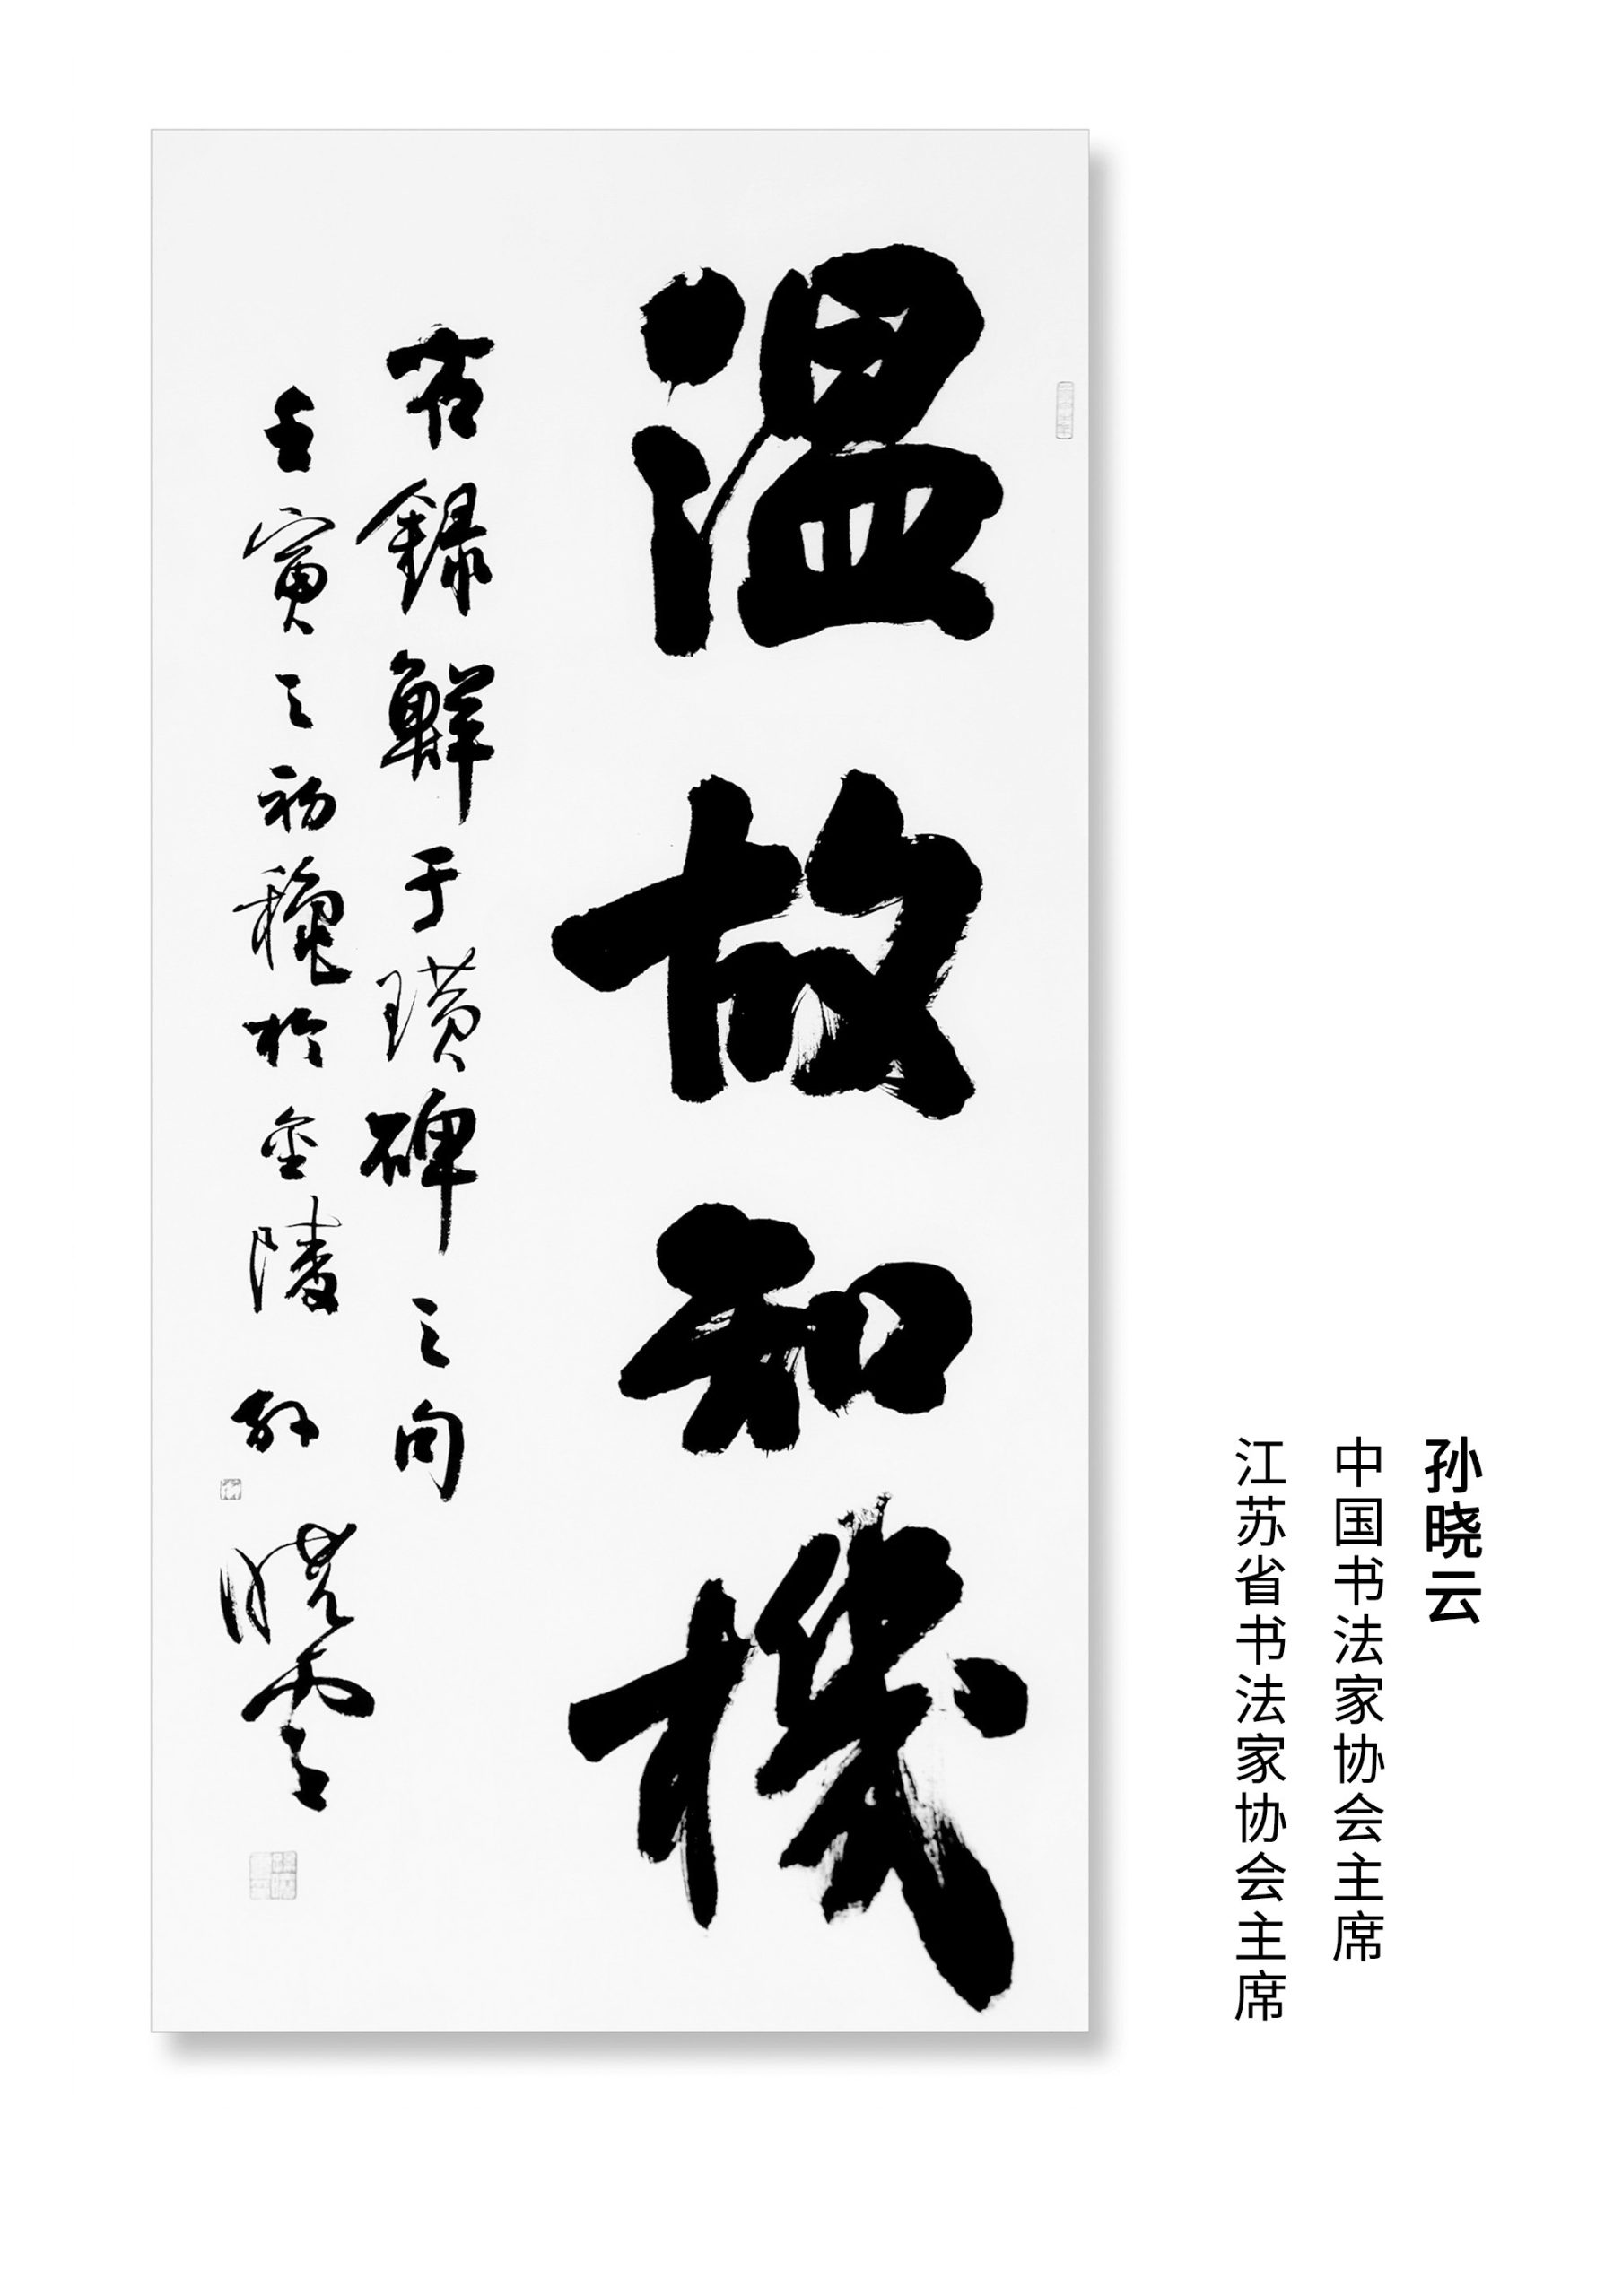 孙晓云
中国书法家协会主席
江苏省书法家协会主席
温故知機
节録鲜于璜碑之句
壬寅之初穐於金陵 孙晓雲